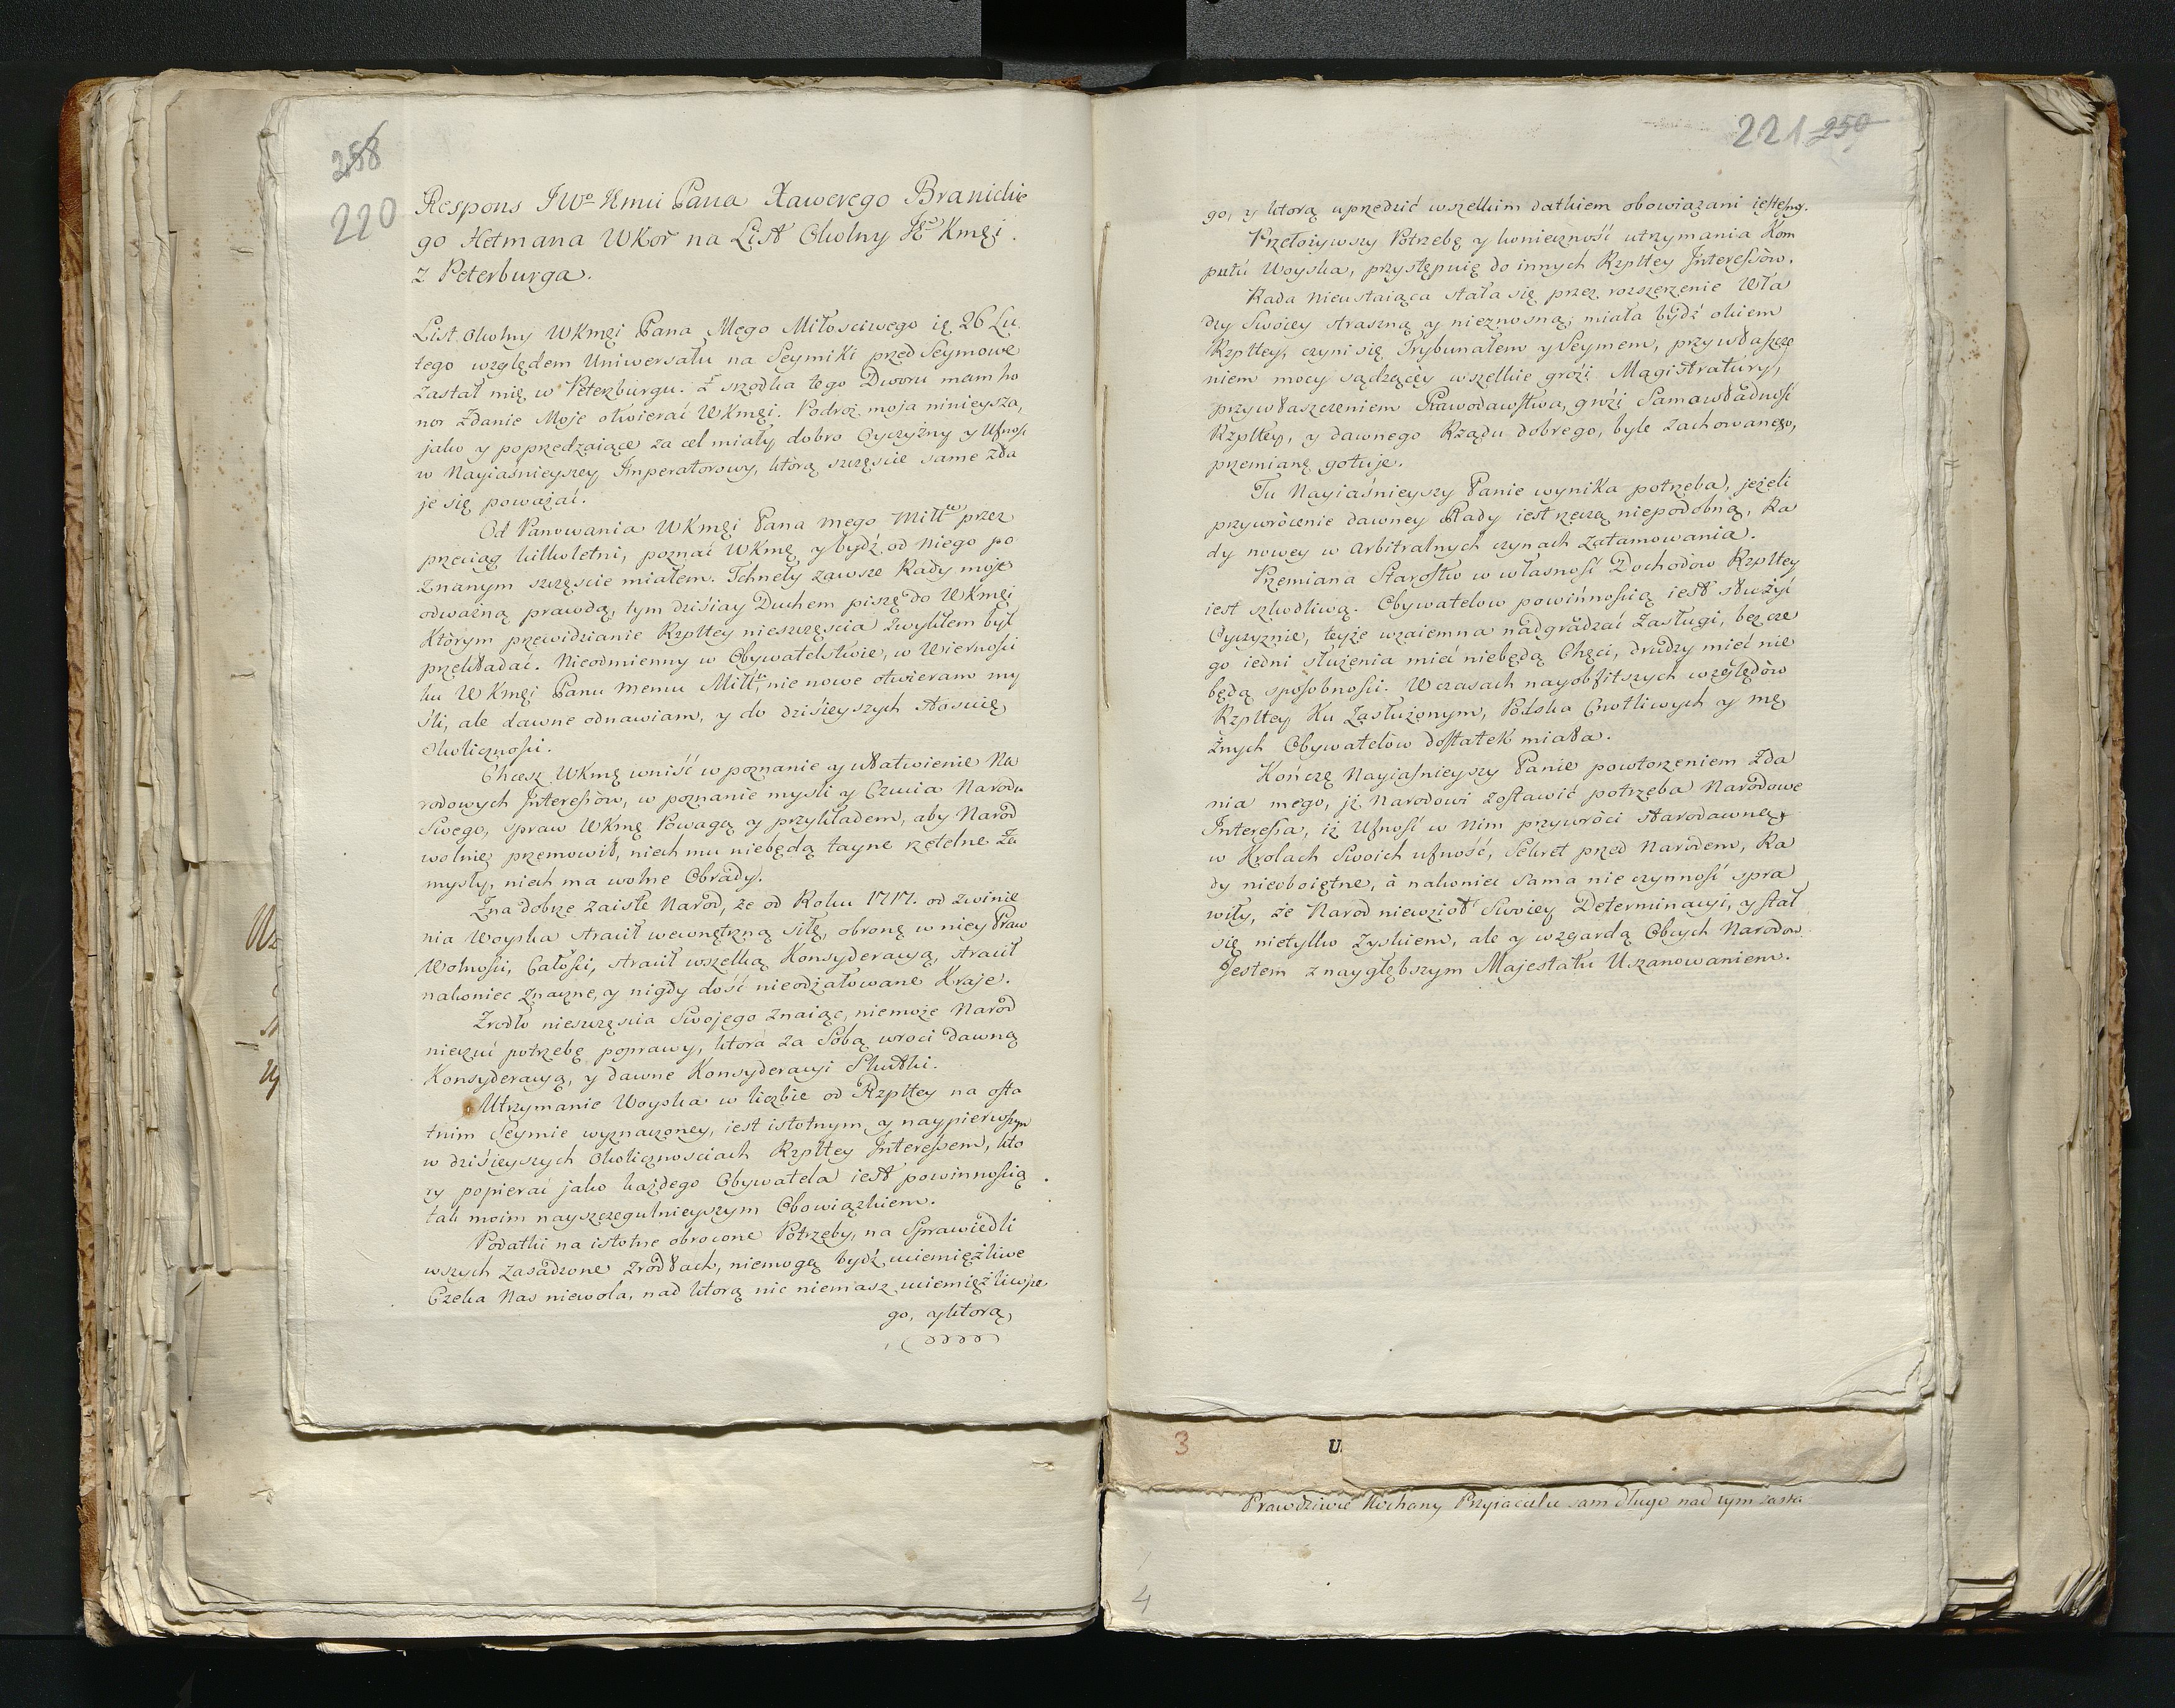 258
220
Respons JWo Jmci Pana Xawerego Branickie
go Hetmana WKor na List Okolny JKmci
z Peterburga.
List Okolny WKmci Pana Mego Miłosciwego ię 26 Lu
tego względem Uniwersału na Seymiki przed Seymowe
zastał mię w Peterzburgu. Z srzodka tego Dworu mam ho
nor Zdanie Moje otwierać WKmci. Podroż moja ninieysza,
jako y poprzedzaiące za cel miały dobro Oyczyzny y Ufność
w Nayiaśnieyszey Imperatorowy, którą szczęscie same zda
je się poważać.
Od Panowania WKmci Pana mego Miłłgo przez
przeciąg kilkoletni, poznać WKmę y bydź od Niego po
znanym szczęscie miałem. Tchneły zawsze Rady moje
odważną prawdą, tym dziśiay Duchem piszę do WKmci
Którym przewidzianie Rzpltey nieszczęscia Zwykłem był
przekładać. Nieodmienny w Obywatelstwie, w Wierności
ku WKmci Panu memu Miłłu, nie nowe otwieram my
śli, ale dawne odnawiam, y do dziśieyszych stosuię
okoliczności.
Chcesz WKmę wniść w poznanie y ułatwienie Na
rodowych Interessów, w poznanie mysli y Czucia Narodu
Swego, spraw WKmę Powagą y przykładem, aby Narod
wolnie przemowił, niech mu niebędą tayne rzetelne Za
mysły, niech ma wolne Obrady.
Zna dobrze zaiste Narod, że od Roku 1717. od zwinie
nia Woyska stracił wewnętrzną siłę, obronę w niey Praw
Wolności, Całości, stracił wszelką Konsyderacyą, stracił
nakoniec znaczne, y nigdy dość nieodżałowane Kraje.
Zrodło nieszczęscia Swojego znaiąc, niemoże Narod
nieczuć potrzebę poprawy, ktora za Sobą wroci Dawną
Konsyderacyą, y dawne Konsyderacyi Skutki.
Utrzymanie Woyska w liczbie od Rzpltey na osta
tnim Seymie wyznaczoney, iest istotnym y naypierwszym
w dziśieyszych Okolicznosciach Rzpltey Interessem, kto
ry popierać jako każdego Obywatela iest powinnością
tak moim nayszczegulnieyszym Obowiązkiem.
Podatki na istotne obrocone Potrzeby, na Sprawiedli
wszych zasadzone zrodłach, niemogą bydź uciemiężliwe
Czeka Nas niewola, nad ktorą nic niemasz uciemiężliwsze
go, y ktorą
221 259
go, y ktorą uprzedzić wszelkim datkiem obowiązani iesteśmy.
Przełożywszy Potrzebę y konieczność utrzymania Kom
putu Woyska, przystępuię do innych Rzpltey Interessòw.
Rada Nieustaiąca stała się przez rozszerzenie Wła
dzy Swoiey straszną y nieznosną; miała bydź okiem
Rzpltey, czyni się Trybunałem y Seymem, przywłaszcze
niem mocy sądzącey wszelkie grozi Magistratury,
przywłaszczeniem Prawodawstwa, grozi Samawładność
Rzpltey, y dawnego Rządu dobrego, byle zachowanego,
przemianę gotuje.
Tu Nayiaśnieyszy Panie wynika potrzeba, jeżeli
przywrócenie dawney Rady iest rzeczą niepodobną, Ra
dy nowey w arbitralnych czynach zatamowania.
Przemiana Starostw w własność Dochodow Rzpltey
iest szkodliwą. Obywatelow powinnością iest służyć
Oyczyznie, teyże wzaiemna nadgradzać Zasługi, bez cze
go iedni służenia mieć niebędą Chęci, drudzy mieć nie
będą sposobności. W czasach nayobfitszych względòw
Rzpltey Ku Zasłużonym, Polska Cnotliwych y mę
żnych Obywatelòw dostatek miała.
Kończę Nayiasnieyszy Panie powtorzeniem Zda
nia mego, jż Narodowi zostawić potrzeba Narodowe
Interessa, iż Ufność w Nim przywróci starodawną
w Krolach Swoich ufność, Sekret przed Narodem, Ra
dy nieoboiętne, à nakoniec sama nie czynność spra
wiły, że Narod niewziòł Swoiey Determinacyi, y stał
się nietylko Zyskiem, ale y wzgardą Obcych Narodow.
Jestem z naygłębszym Majestatu Uszanowaniem.
3
U.
Prawdziwie Kochany Przyiacielu sam długo nad tym zasta
4